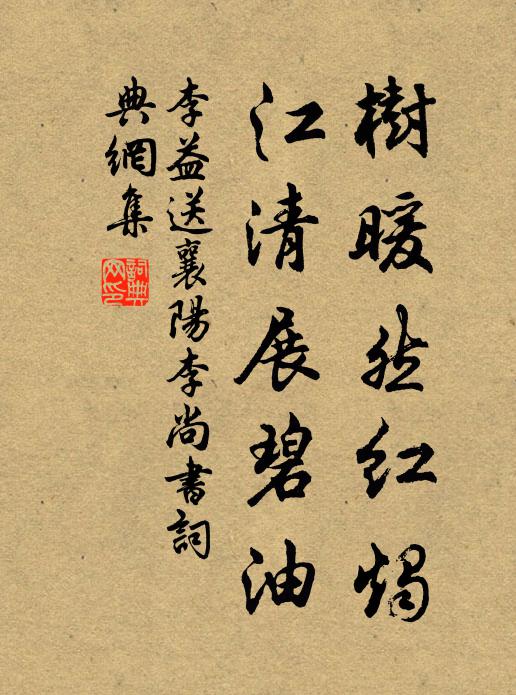 樹暖然紅燭
江清展碧油
李益送襄陽李尚書詞
典網集
詞典
网印